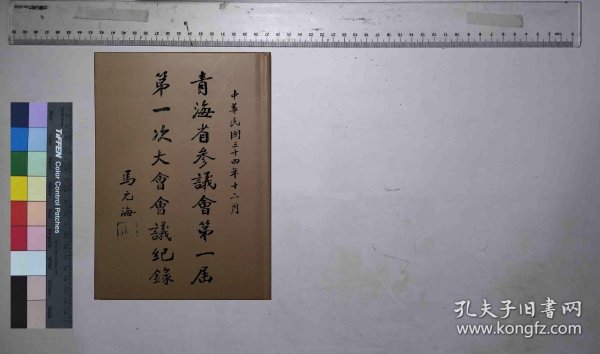 中華民國三十四年十二月
青海省參議會第一屆
第一次大會會議紀錄
馬元海
TIFFEN Color Control Patches
孔夫子旧书网
www.kongfz.com